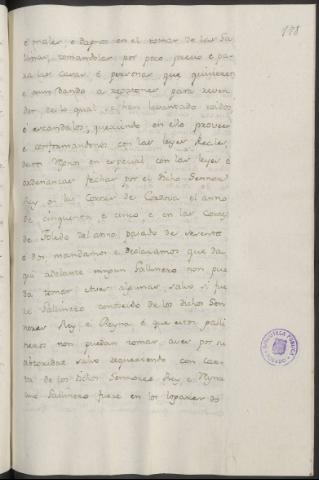 188
é males, é daños en el tomar de las Ga
llinas, tomandolas por poco precio e pa
ra las casas é personas que quisieren
é aun dando a regatones para reven
der, de lo qual se han levantado roidos
é escandalos, queriendo en ello proveer
e conformandonos con las leyes Reales,
destos Reynos en especial con las leyes é
ordenanzas fechas por el dicho Sennor
Rey, en las Cortes de Cordova el anno
de cinquenta é cinco e en las Cortes
de Toledo del anno pasado de sesenta
e dos mandamos e declaramos que da
qui adelante ningun Gallinero non pue
da tomar aves algunas, salvo si fue
re Gallinero conoscido de los dichos Sen
nores Rey, e Reyna é que estos galli
neros non puedan tomar aves por su
abtoridad salvo requeriendo con car
ta de los dichos Sennores Rey, e Reyna